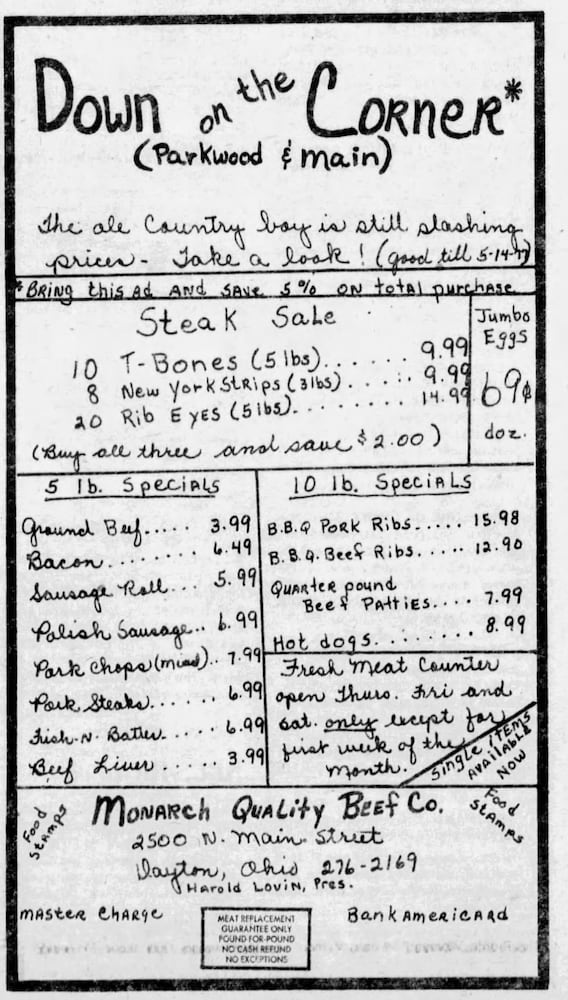 Down on the Corner*
(Parkwood & main)
The ole Country boy is still slashing
prices - Take a look! (good till 5-14-77)
*Bring this ad and save 5% on total purchase
Steak Sale
10 T-Bones (5 lbs)....... 9.99
8 New York Strips (3 lbs)...... 9.99
20 Rib Eyes (5 lbs)....... 14.99
(Buy all three and save $2.00)
Jumbo
Eggs
69¢
doz.
5 lb. Specials
Ground Beef..... 3.99
Bacon........ 6.49
Sausage Roll.... 5.99
Polish Sausage.. 6.99
Pork Chops (mixed).. 7.99
Pork Steaks...... 6.99
Fish-N-Batter..... 6.99
Beef Liver...... 3.99
10 lb. Specials
B.B.Q Pork Ribs..... 15.98
B.B.Q. Beef Ribs..... 12.90
Quarter pound
Beef Patties.... 7.99
Hot dogs......... 8.99
Fresh Meat Counter
open Thurs. Fri and
Sat. only except for
first week of the
month.
Single items
Available
Now
Food
Stamps
Monarch Quality Beef Co.
2500 N. Main Street
Dayton, Ohio 276-2169
Harold Lovin, Pres.
Food
Stamps
Master Charge
MEAT REPLACEMENT
GUARANTEE ONLY
POUND-FOR-POUND
NO CASH REFUND
NO EXCEPTIONS
BankAmericard